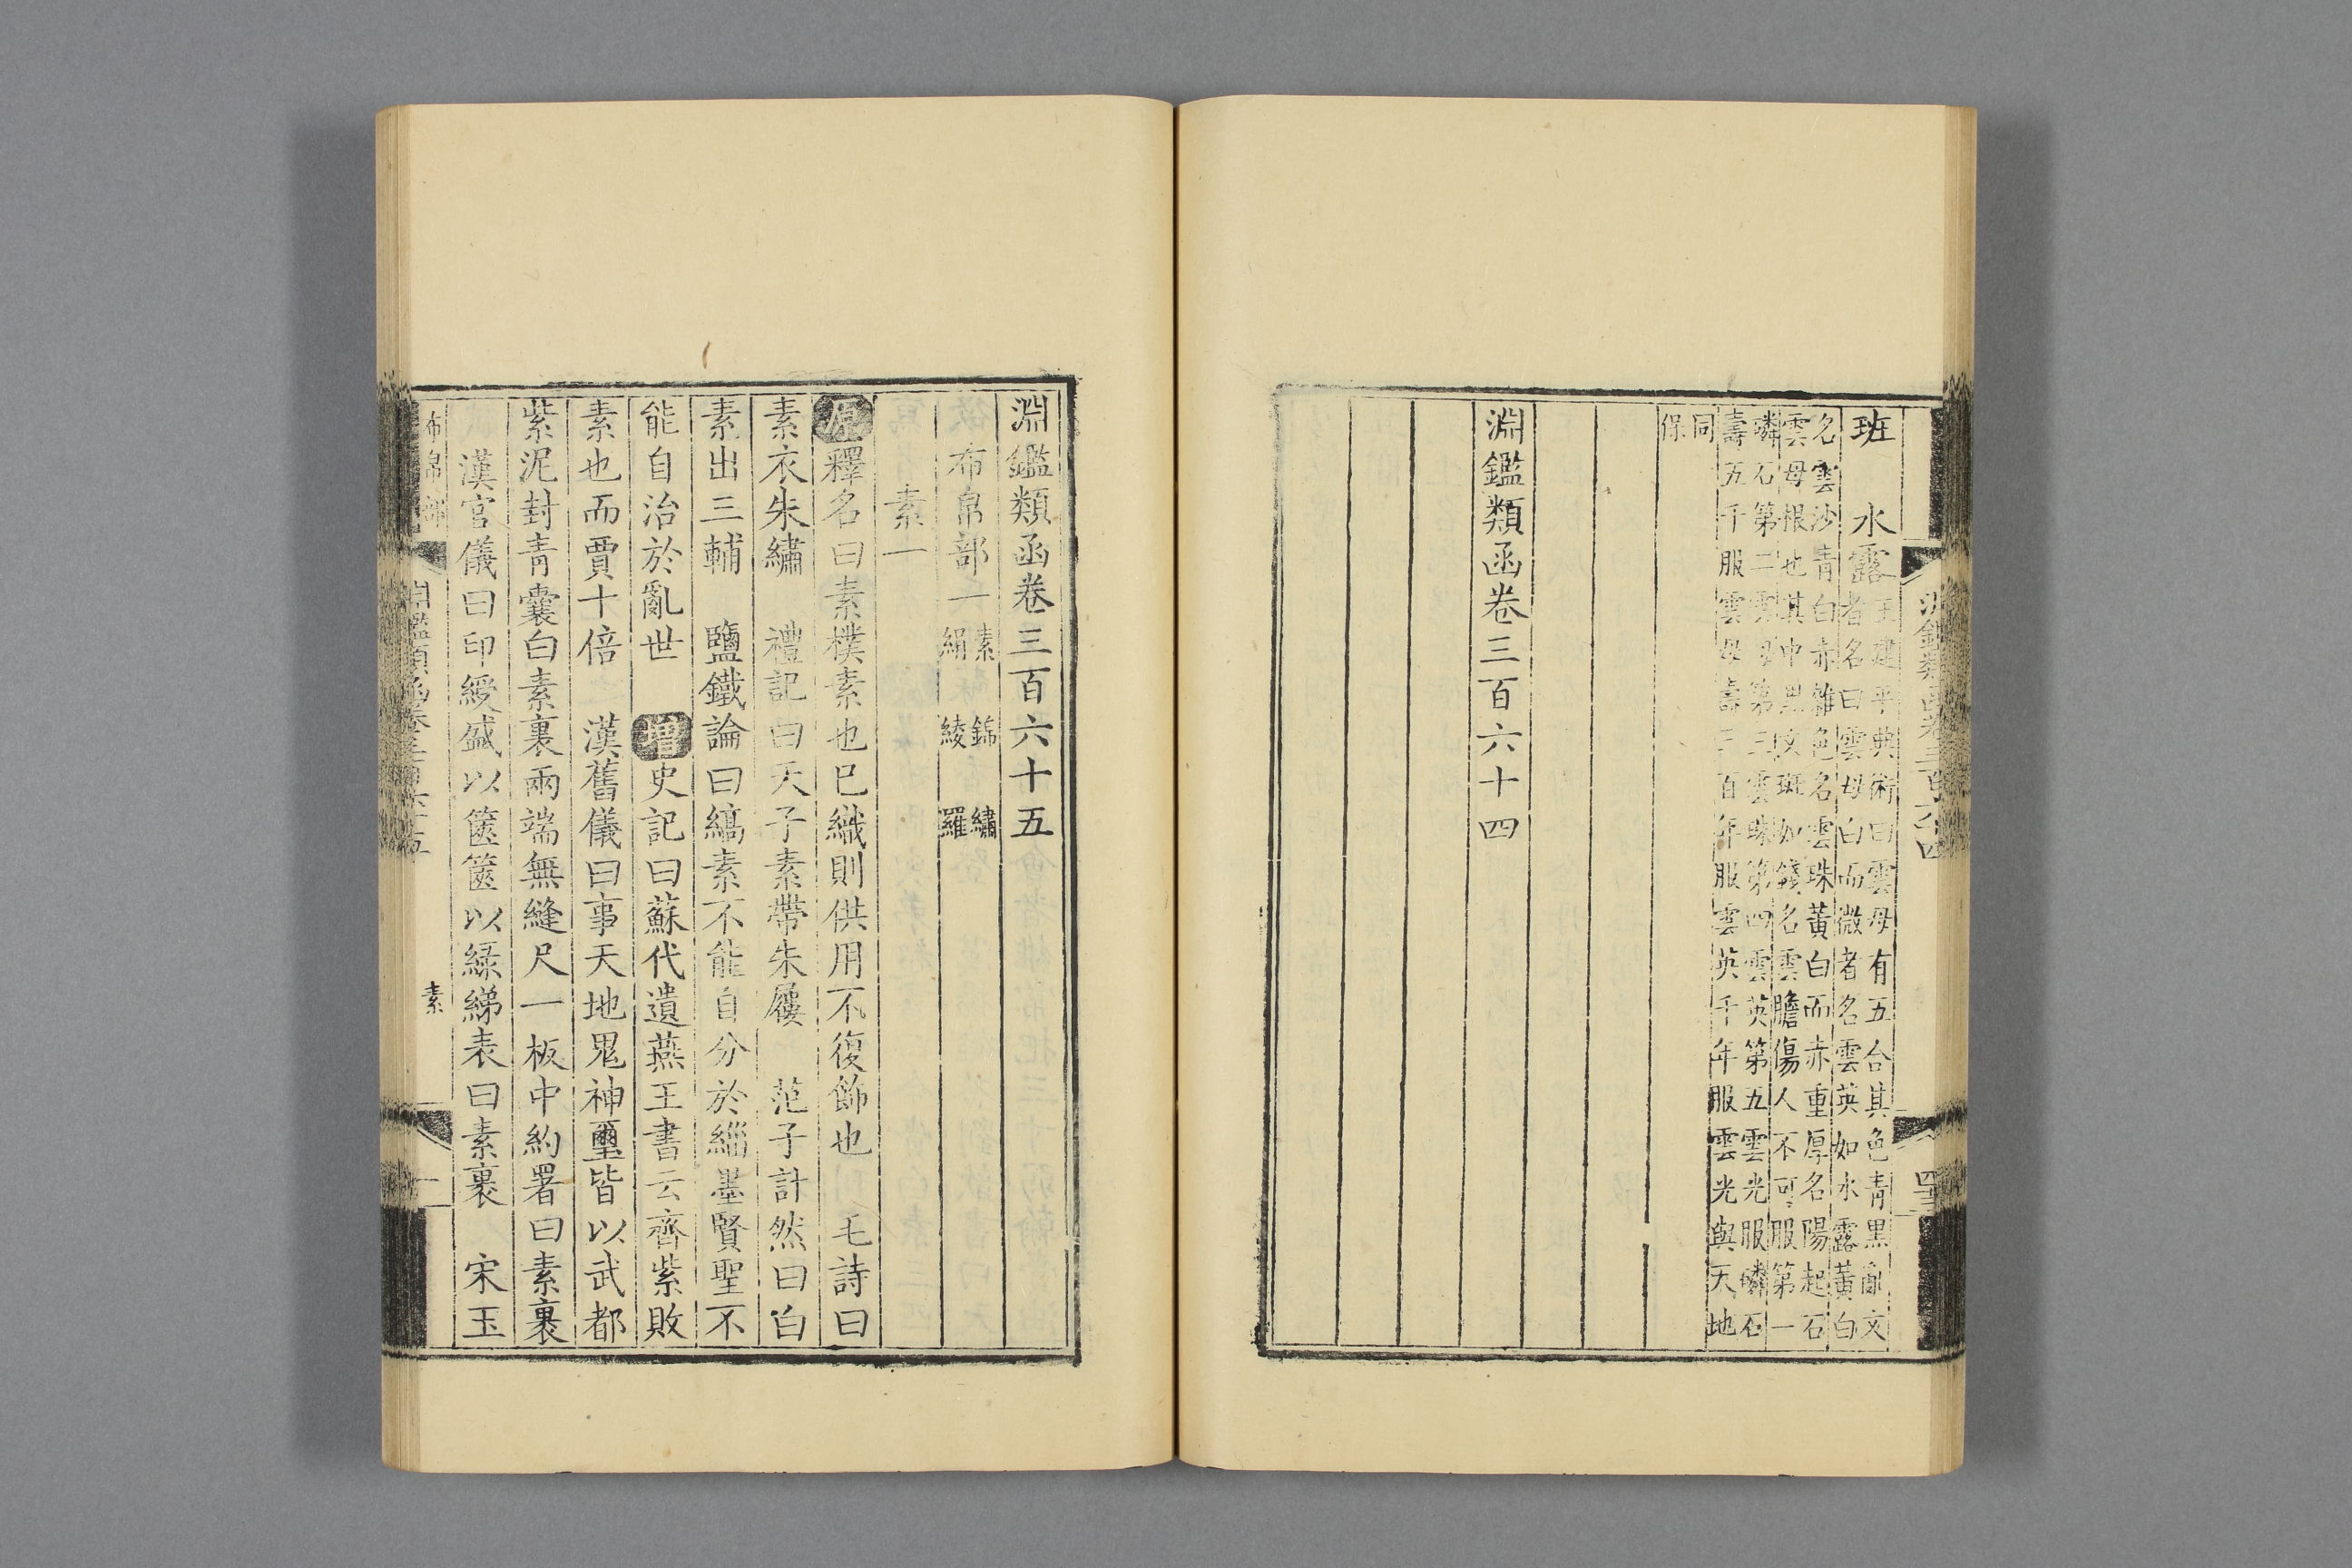 班　水露
王建平典術曰雲母有五台其色青黑亂文
者名曰雲母白而微者名雲英如水露黃白
名雲沙青白赤雜色名雲珠黃白而赤重厚名陽起石
雲母根也其中黑文斑如錢名雲膽傷人不可服第一
磷石第二雲母第三雲珠第四雲英第五雲光服磷石
壽五千服雲母壽三百年服雲英千年服雲光與天地
同
保
淵鑑類函卷三百六十四
淵鑑類函卷三百六十四
淵鑑類函卷三百六十五
布帛部一　素　錦　繡
絹　綾　羅
素一
原釋名曰素樸素也已織則供用不復飾也　毛詩曰
素衣朱繡　禮記曰天子素帶朱屨　范子計然曰白
素出三輔　鹽鐵論曰縞素不能自分於緇墨賢聖不
能自治於亂世　增史記曰蘇代遺燕王書云齊紫敗
素也而賈十倍　漢舊儀曰事天地鬼神璽皆以武都
紫泥封青囊白素裏兩端無縫尺一板中約署曰素裹
漢官儀曰印綬盛以篋篋以綠綈表曰素裏　宋玉
布帛部
淵鑑類函卷三百六十五
素
一